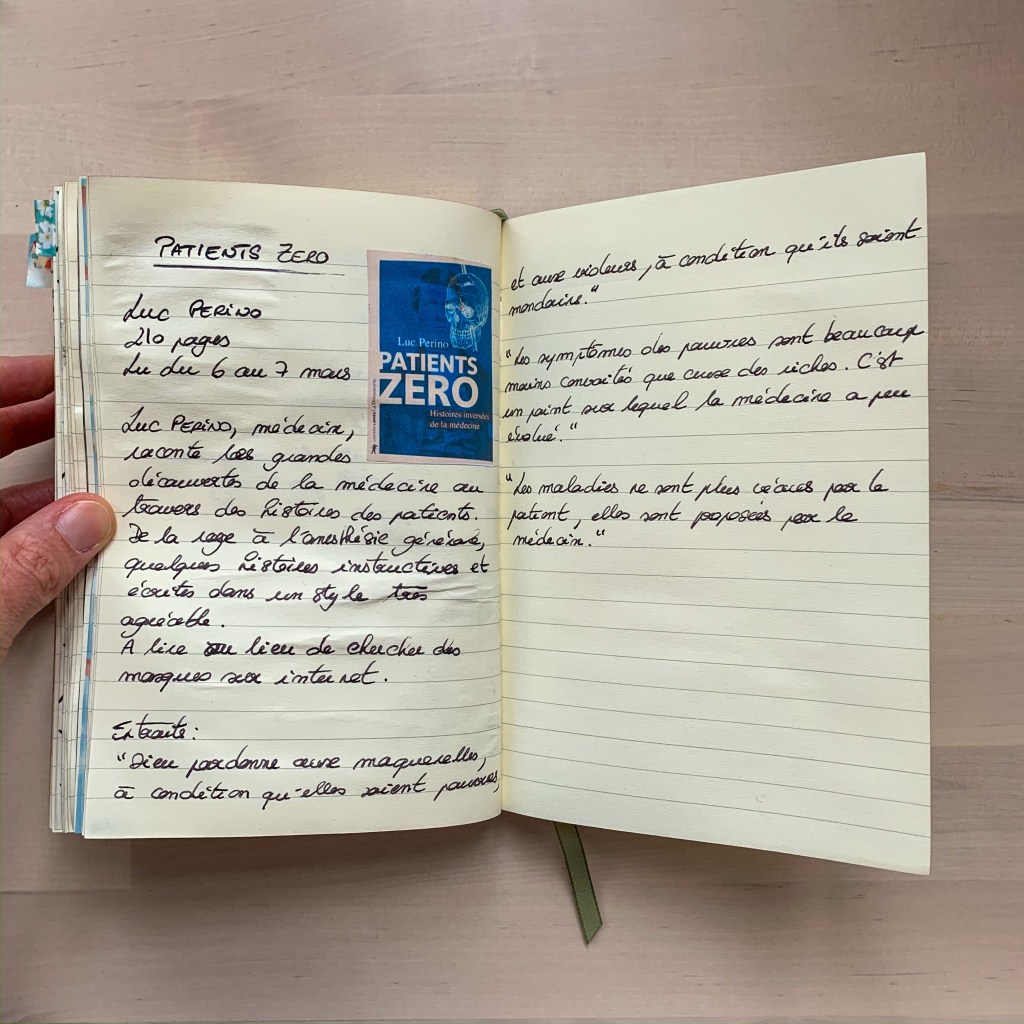 PATIENTS ZERO
Luc PERINO
210 pages
Lu du 6 au 7 mars
Luc PERINO, médecin,
raconte les grandes
découvertes de la médecine au
travers des histoires des patients.
De la rage à l'anesthésie générale,
quelques histoires instructives et
écrites dans un style très
agréable.
A lire au lieu de chercher des
masques sur internet.
Extraits :
"Dieu pardonne aux maquerelles,
à condition qu'elles soient pauvres,
Luc Perino
PATIENTS
ZERO
Histoires inversées
de la médecine
et aux violeurs, à condition qu'ils soient
mondains."
"Les symptômes des pauvres sont beaucoup
moins convoités que ceux des riches. C'est
un point sur lequel la médecine a peu
évolué."
"Les maladies ne sont plus vécues par le
patient, elles sont proposées par le
médecin."